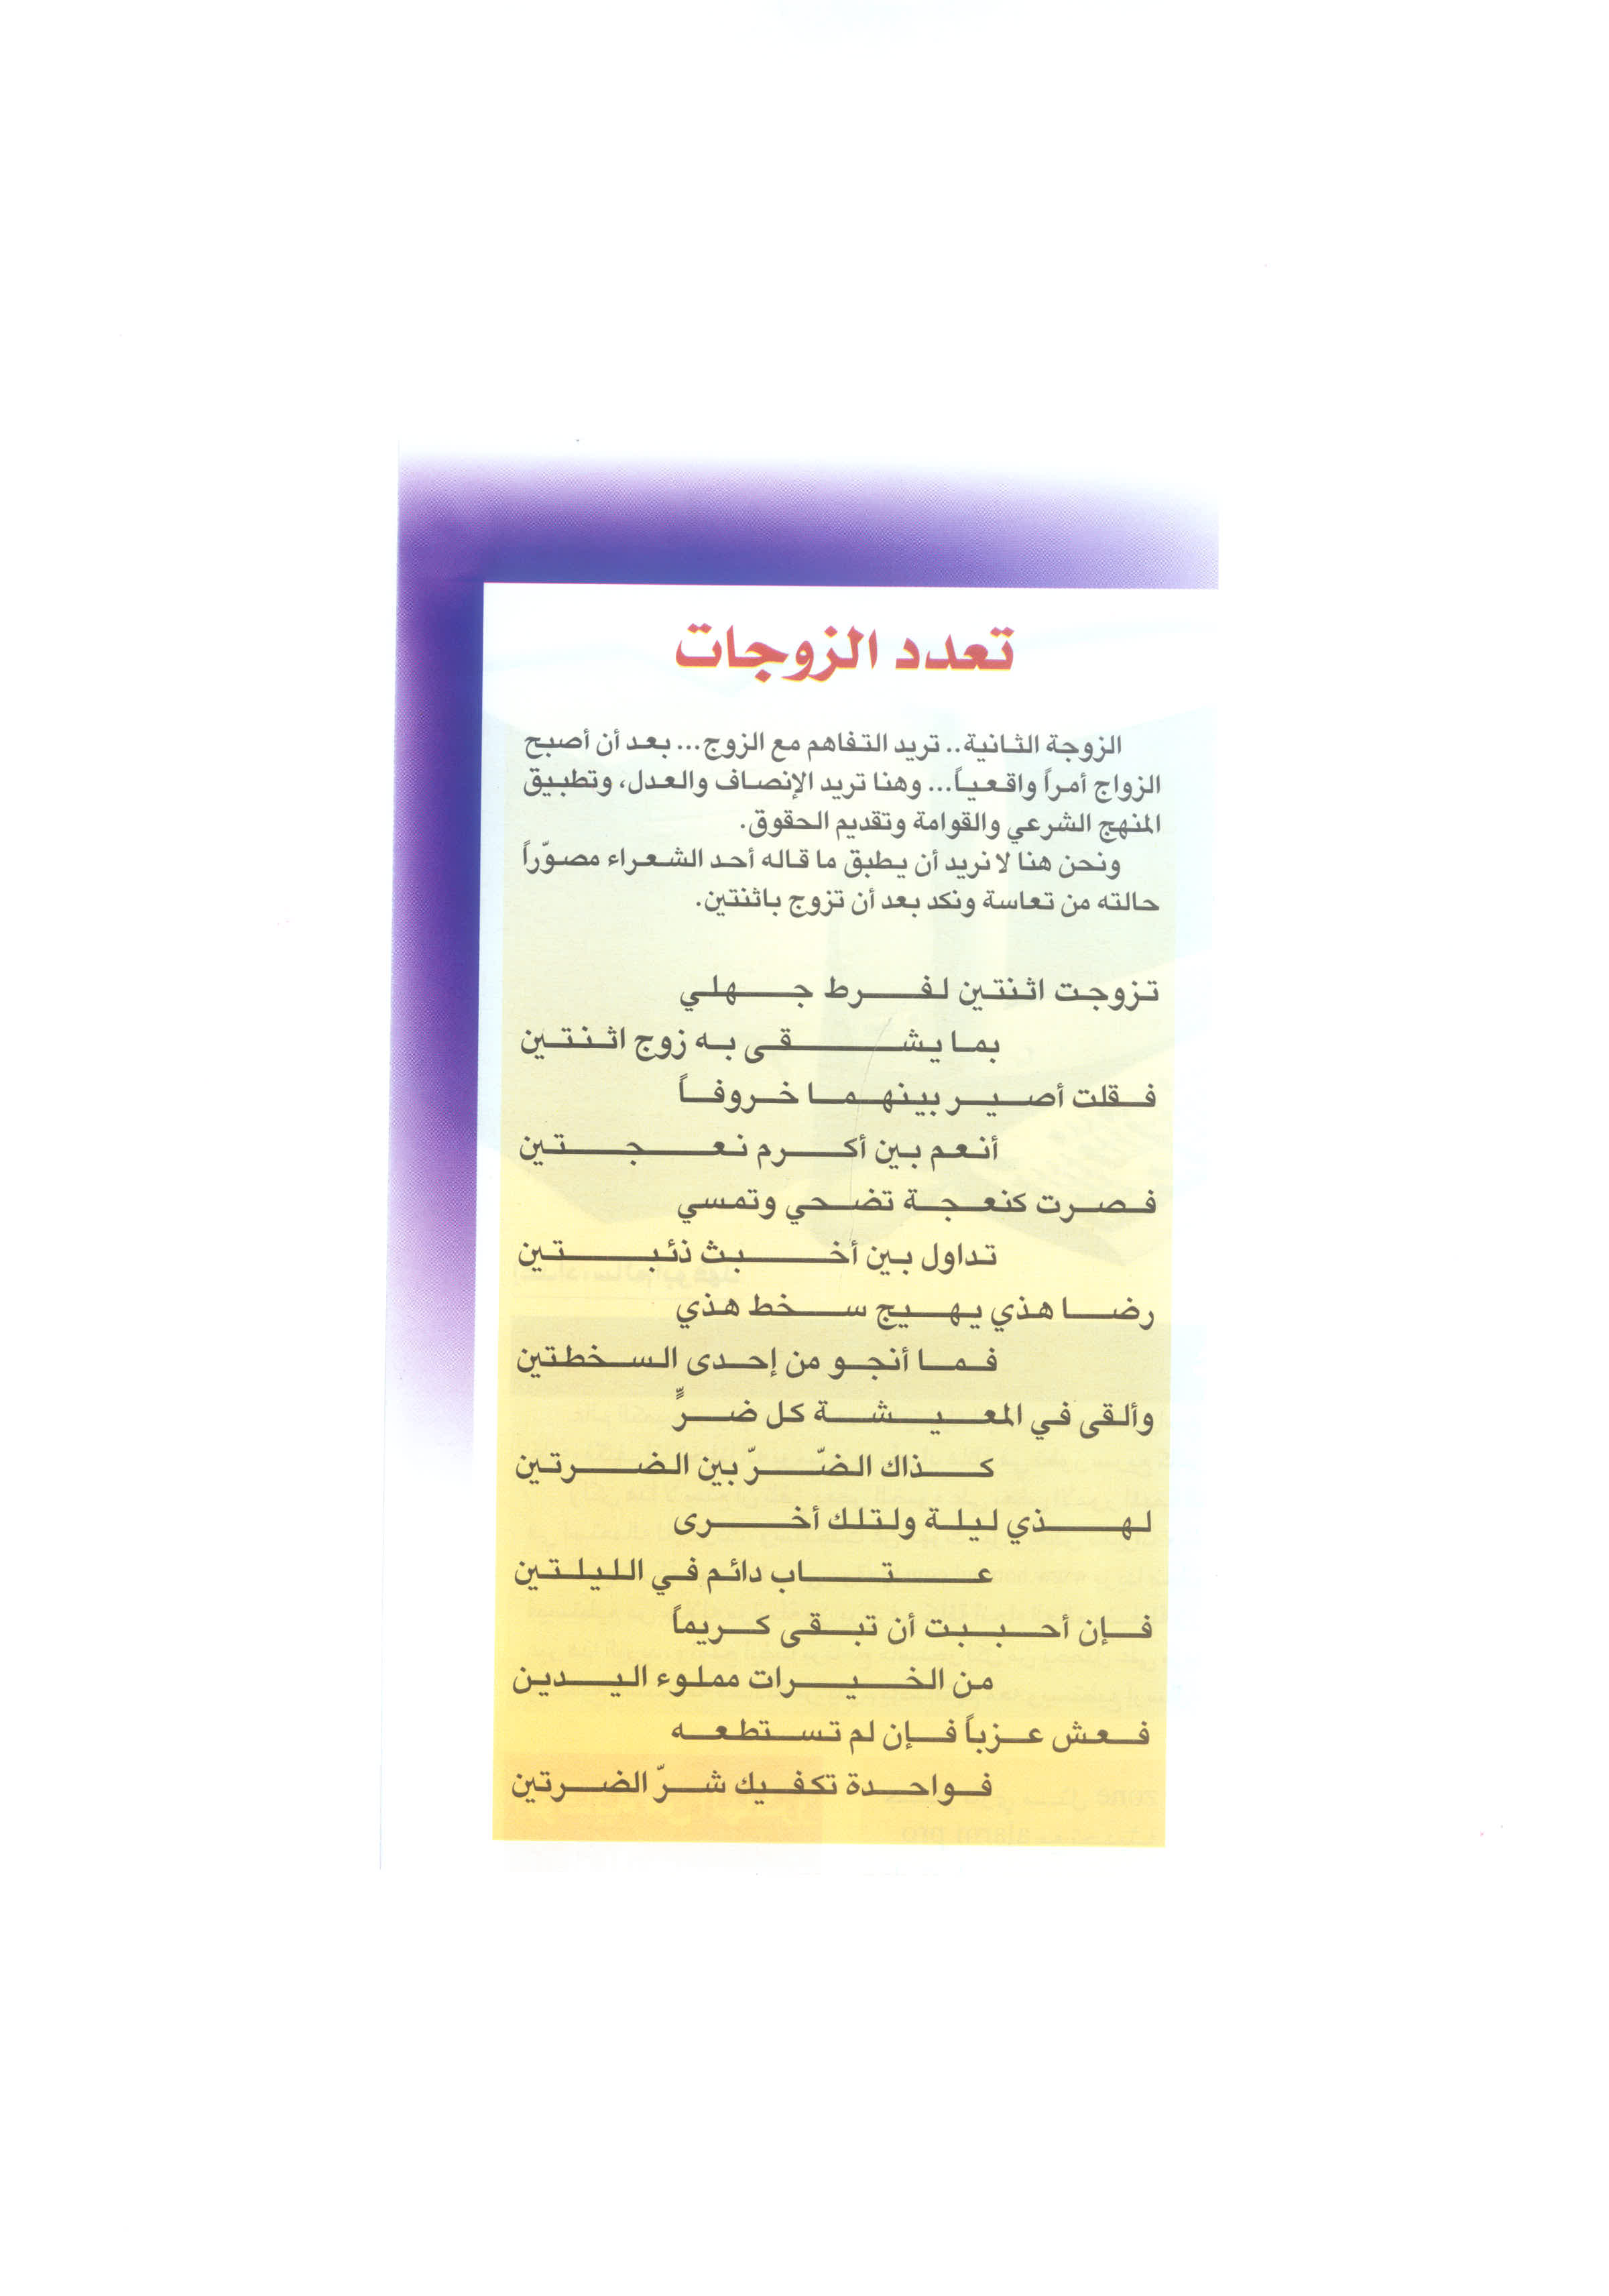 تعدد الزوجات
الزوجة الثانية.. تريد التفاهم مع الزوج... بعد أن أصبح
الزواج أمراً واقعياً... وهنا تريد الإنصاف والعدل، وتطبيق
المنهج الشرعي والقوامة وتقديم الحقوق.
ونحن هنا لا نريد أن يطبق ما قاله أحد الشعراء مصوّراً
حالته من تعاسة ونكد بعد أن تزوج باثنتين.
تزوجت اثنتين لفرط جهلي
بما يشقى به زوج اثنتين
فقلت أصير بينهما خروفاً
أنعم بين أكرم نعجتين
فصرت كنعجة تضحي وتمسي
تداول بين أخبث ذئبتين
رضا هذي يهيج سخط هذي
فما أنجو من إحدى السخطتين
وألقى في المعيشة كل ضرٍّ
كذاك الضّرّ بين الضرتين
لهذي ليلة ولتلك أخرى
عتاب دائم في الليلتين
فإن أحببت أن تبقى كريماً
من الخيرات مملوء اليدين
فعش عزباً فإن لم تستطعه
فواحدة تكفيك شرّ الضرتين